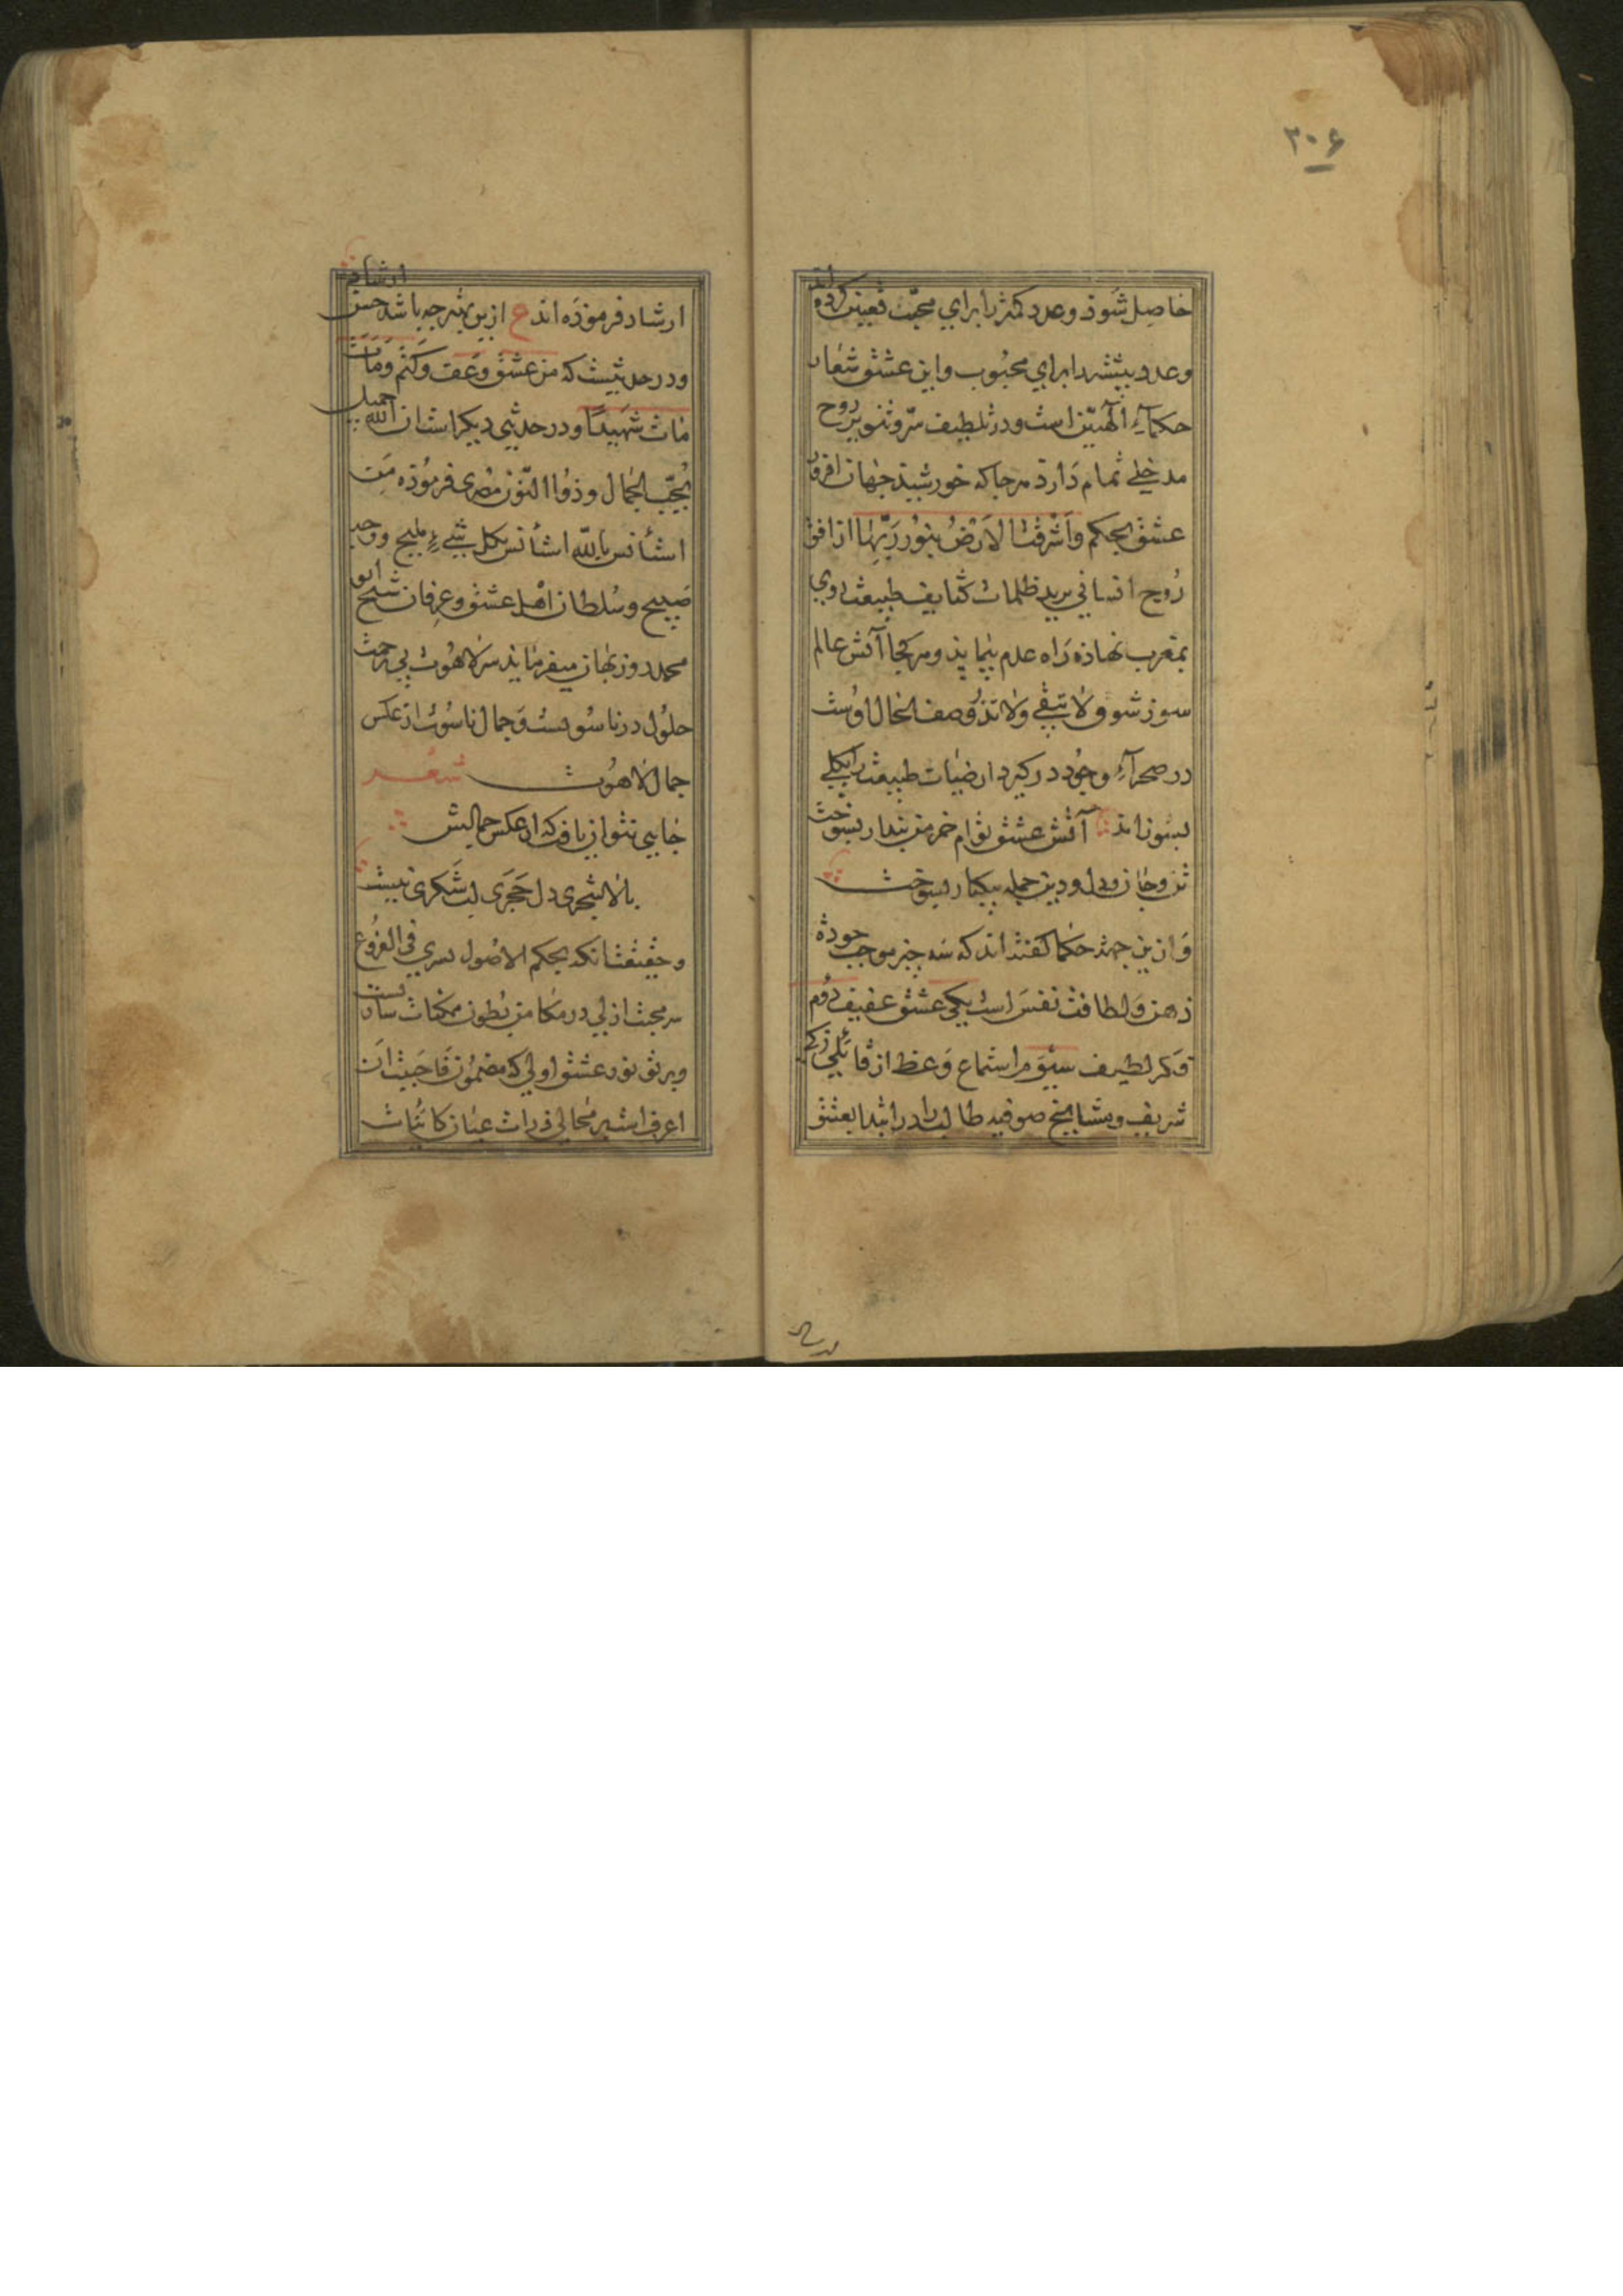 ۳۰۶
حاصل شود و عدد کمتر را برای محب تعیین کرده اند
و عدد بیشتر را برای محبوب و این عشق شعار
حکمآء الهیین است و در تلطیف سرّ و تنویر روح
مدخلی تمام دارد هر جا که خورشید جهان افروز
عشق بحکم وَاَشْرَقَتِ الاَرْضُ بِنُورِ رَبِّهَا از افق
رُوح انسانی برید ظلمات کثایف طبیعت روی
بمغرب نهاده راه عدم پیماید و هر کجا آتش عالم
سوز شوق لا تبقی ولا تذر وصف الحال اوست
در صحرآء وجود درگیرد ارضیات طبیعت را بکلی
بسوزاند آتش عشق توام خرمن پندار بسوخت
تن و جان و دل و دین جمله بیکبار بسوخت
و ازین جهة حکما گفته اند که سه چیز موجب جودة
ذهن و لطافت نفس است یکی عشق عفیف دوم
فکر لطیف سیوم استماع وعظ از قائلی زکی
شریف و مشایخ صوفیه طالب را در ابتدا بعشق
ارشاد فرموده اند ع ازین بهتر چه باشد حسن ارشاد
و در حدیثست که من عشق وعف وکتم ومات
مات شهیدًا و در حدیثی دیگر است ان الله جمیل
یُحِبّ الجمال و ذوا النون مصری فرموده من
استأنس بالله استأنس بکل شیء ملیح ووجه
صبیح و سلطان اهل عشق و عرفان شیخ ابو
محمد روزبهان میفرماید سر لاهوت بی زحمت
حلول در ناسوتست و جمال ناسوت از عکس
جمال لاهوت شعر
جایی نتوان یافت که از عکس جمالیش
بالا شجری دل حجری لب شکری نیست
و حقیقت انکه بحکم الاصول یسری فی الفروع
سر محبت ازلی در مکامن بطون ممکنات ساریست
و پرتو نور عشق اولی که مضمون فاحببت ان
اعرف است بر مجالی ذرات عیان کائنات